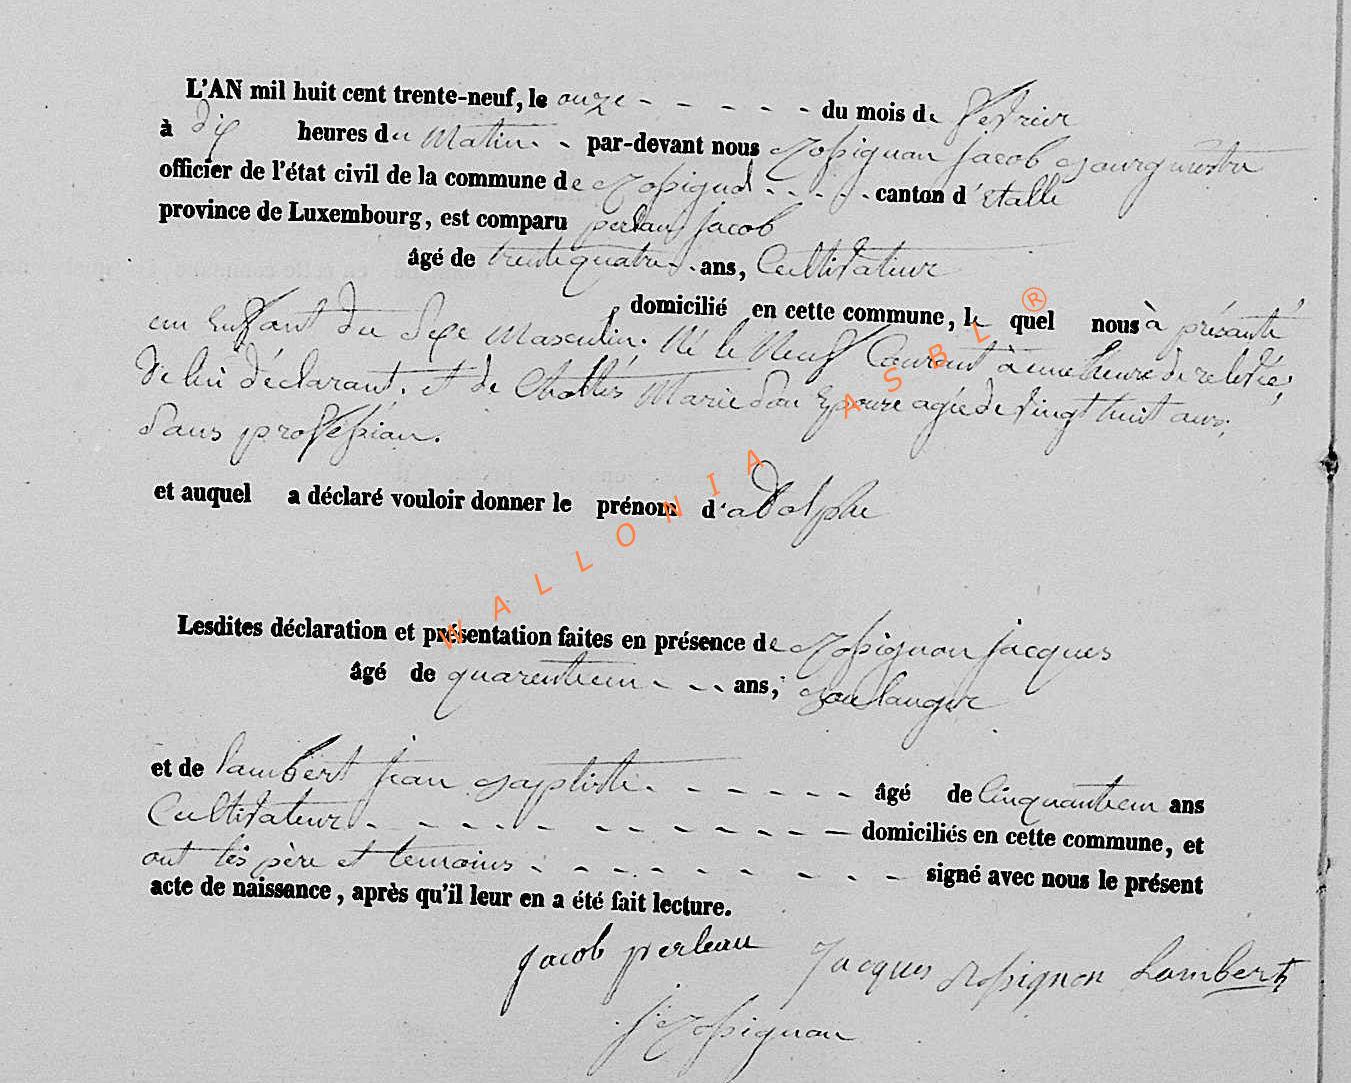 L'AN mil huit cent trente-neuf, le onze - - - - - - du mois de février
à dix heures du Matin - - par-devant nous Rossignon jacob Bourgmestre
officier de l'état civil de la commune de Rossignol - - - - - canton d'étalle
province de Luxembourg, est comparu perlau jacob
âgé de trente quatre - - ans, Cultivateur
domicilié en cette commune, le quel nous à présenté
un Enfant du Sexe Masculin. Né le Neuf Courant à une heure de relevée,
de lui déclarant, et de Marie Son Epouse agée de vingt huit ans,
Sans profession.
et auquel a déclaré vouloir donner le prénom d'adolphe
Lesdites déclaration et présentation faites en présence de Rossignon jacques
âgé de quarente un - - - ans, Boulanger
et de Lambert jean Baptiste - - - - - - âgé de Cinquante un ans
Cultivateur - - - - - - - - - - - - domiciliés en cette commune, et
ont les père et temoins - - - - - - - - - signé avec nous le présent
acte de naissance, après qu'il leur en a été fait lecture.
jacob perleau Jacques Rossignon Lambert
J Rossignon
WALLONIA ASBL ®